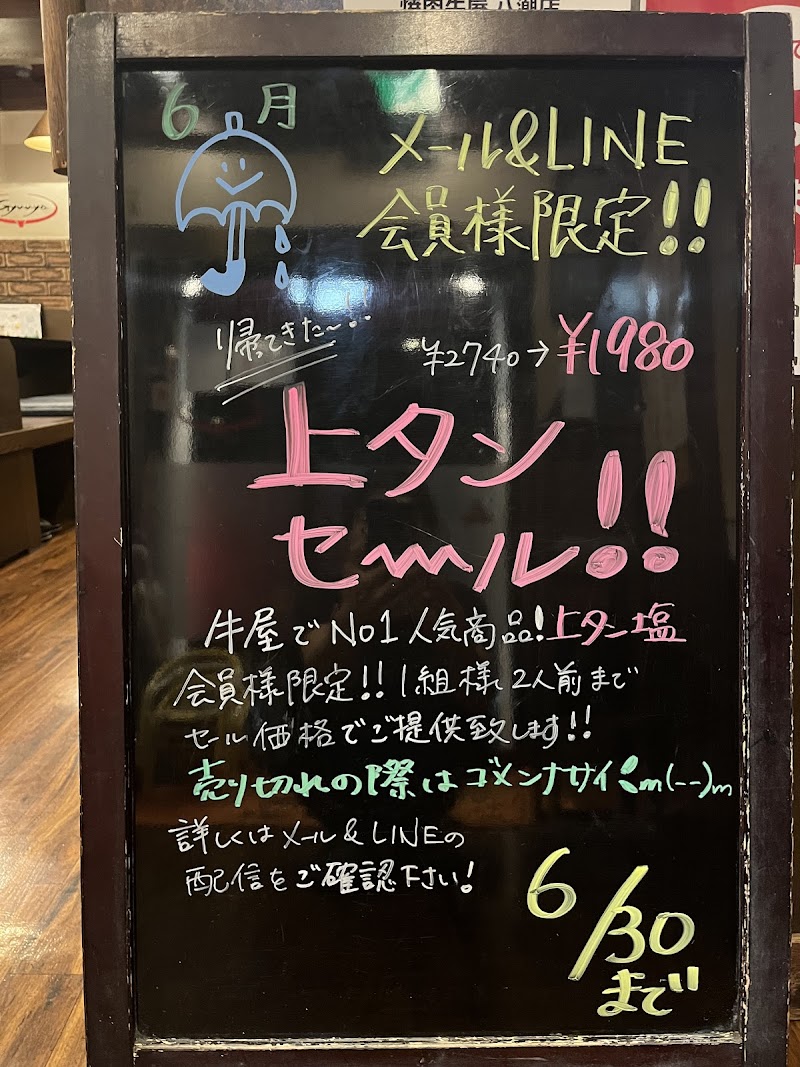 焼肉牛屋 八潮店
Gyuuya
6月
メール&LINE
会員様限定!!
帰ってきた〜!!
¥2740→¥1980
上タン
セール!!
牛屋でNo1人気商品!上タン塩
会員様限定!!1組様2人前まで
セール価格でご提供致します!!
売り切れの際はゴメンナサイm(--)m
詳しくはメール&LINEの
配信をご確認下さい!
6/30
まで